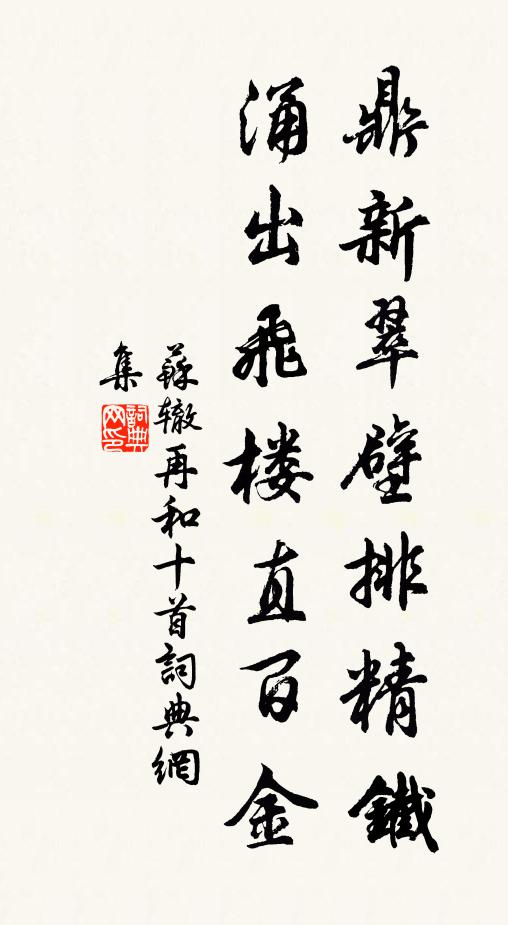 鼎新翠壁排精鐵
涌出飛楼直百金
蘇辙再和十首詞典網
集
詞典網印